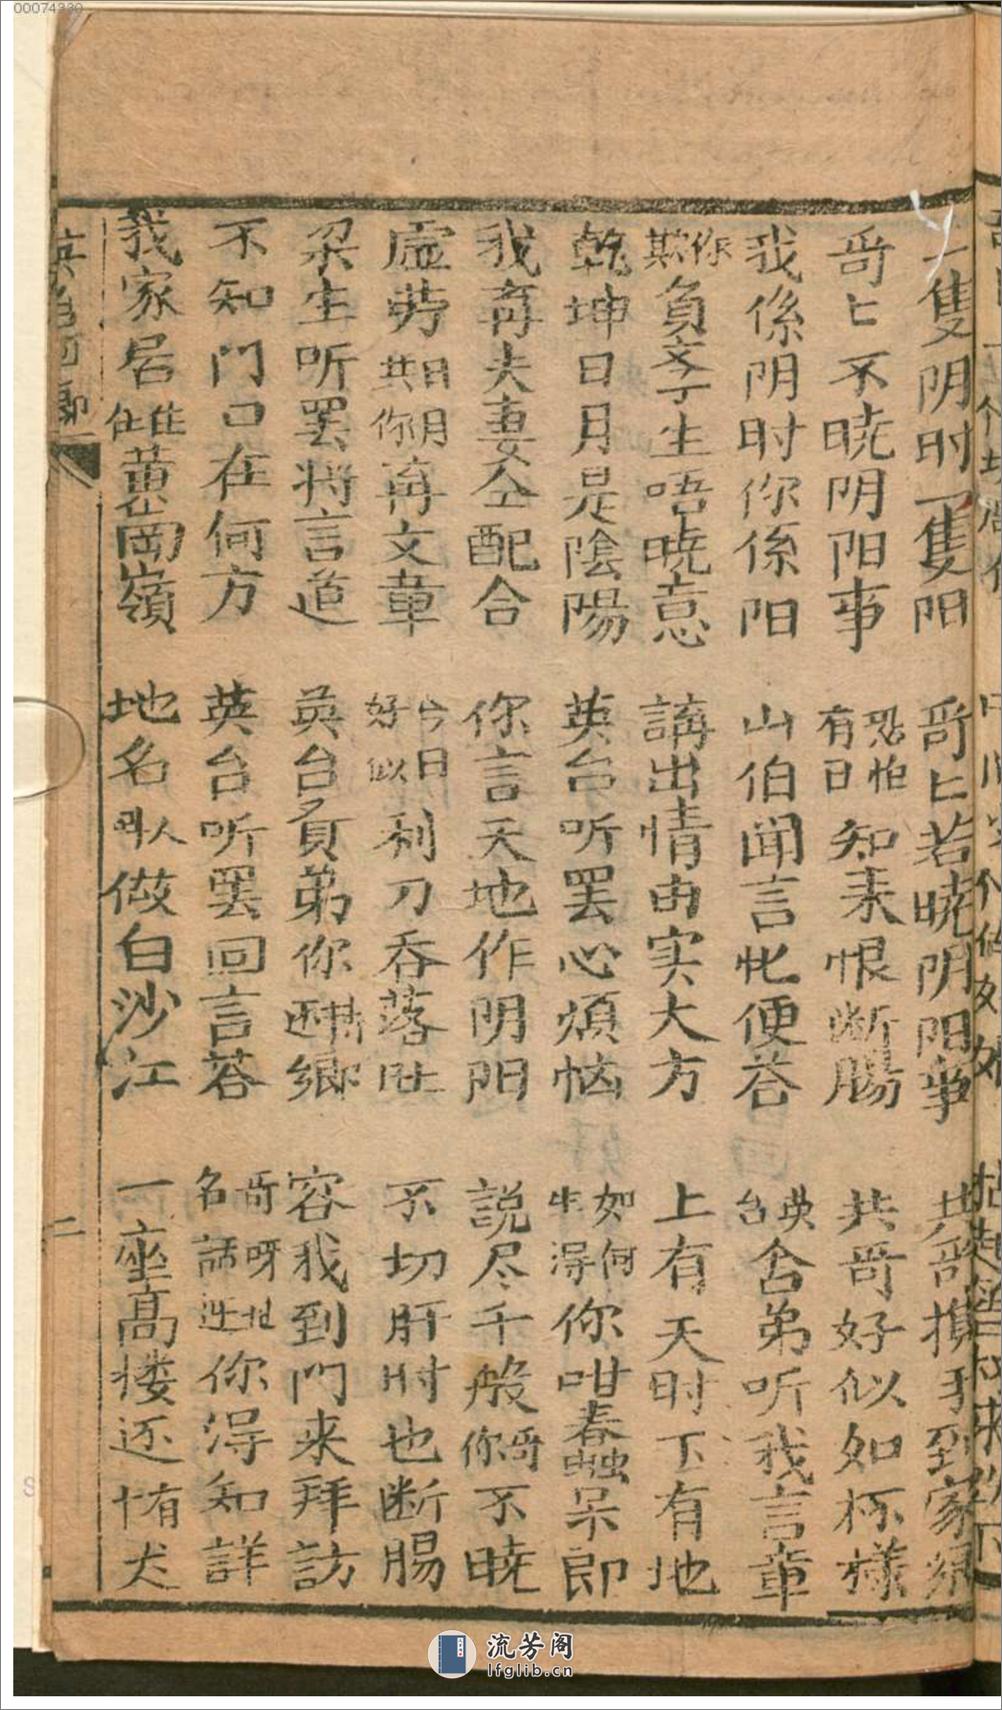 00074330
一隻阴时一隻阳 哥匕若暁阴阳事 共哥携手到家
哥匕不暁阴阳事 恐怕有日知来恨断腸 共哥好似如杯様
我係阴时你係阳 山伯闻言忙便荅 英台舍弟听我言章
你欺負李生唔暁意 講出情由实大方 上有天时下有地
乾坤日月是陰陽 英台听罢心煩恼 如何生得你咁春蟲呆郎
我再夫妻仝配合 你言天地作阴阳 説尽千般你哥不暁
虚劳日月共你再文章 今日好似利刀吞落肚 不切肝时也断腸
梁生听罢将言道 英台負弟你囬鄉 容我到门来拜訪
不知门口在何方 英台听罢回言荅 哥呀地名話过你得知詳
我家居住黄岡嶺 地名叫做白沙江 一座高楼还有犬
二
流芳阁
lfglib.cn